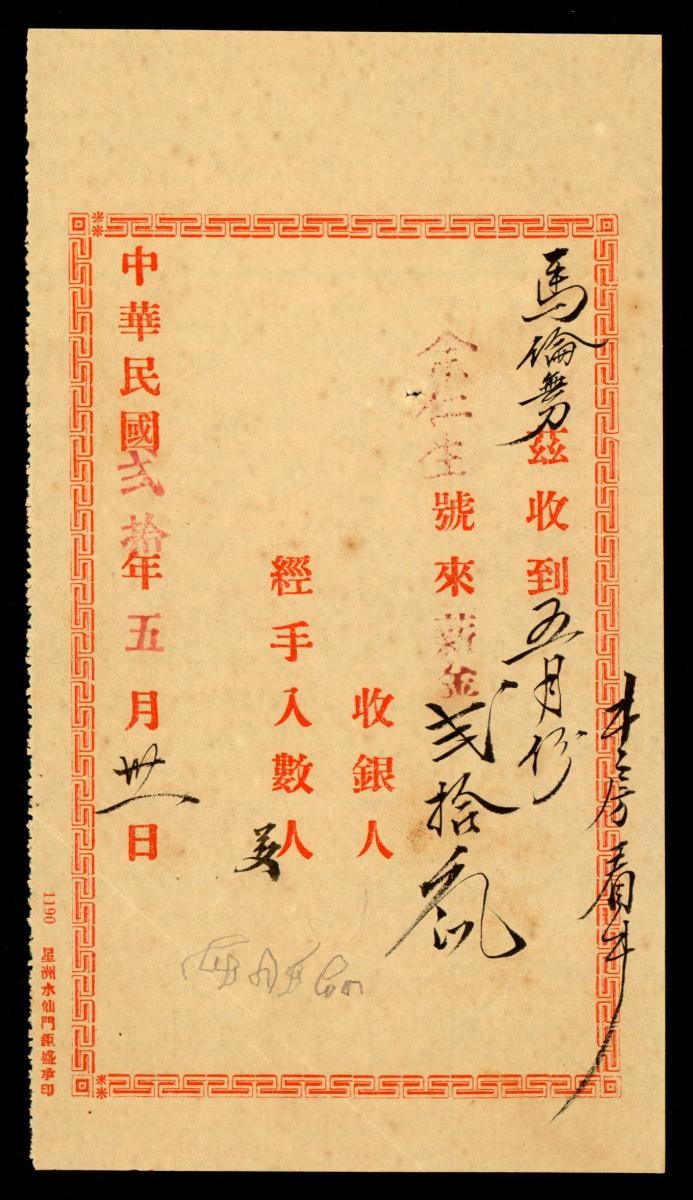 看牛
馬倫務茲收到五月份
余仁生號來薪金弍拾元
收銀人
經手入數人
中華民國弍拾年五月卅一日
1190 星洲水仙門鉅盛承印